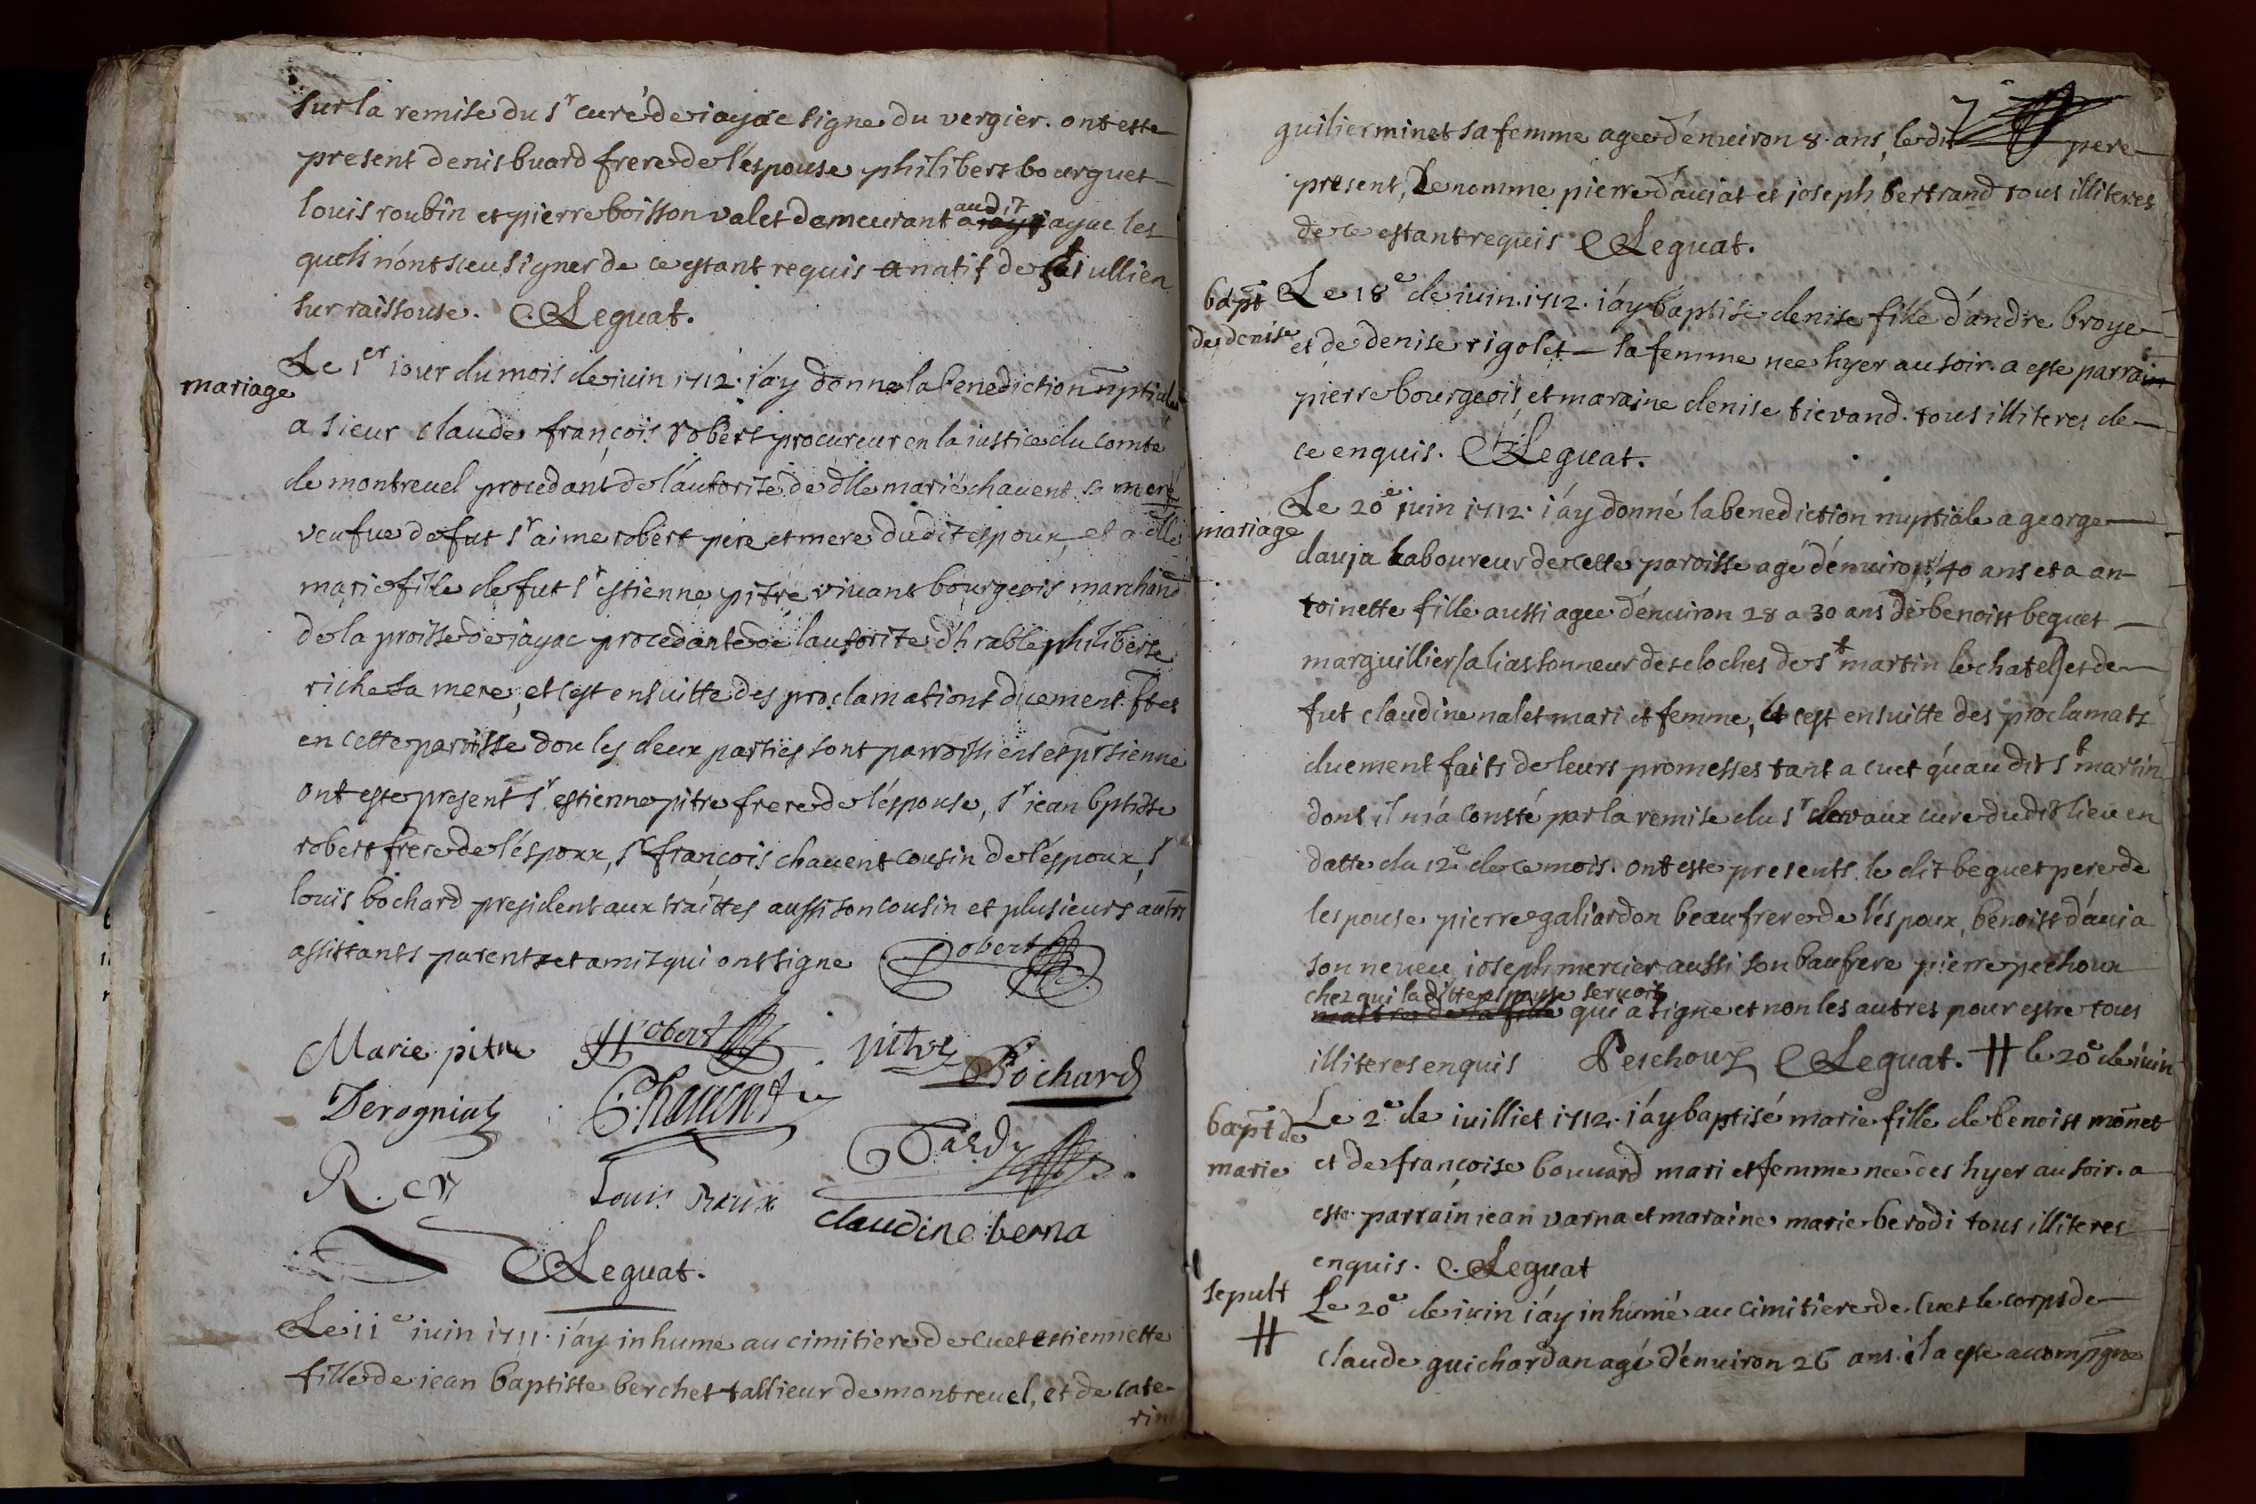 sur la remise du sr curé de iayac signe du vergier. ont este
present denis buard frere de l'espouse philibert bourguet
louis roubin et pierre boisson valet demeurant audit jayac les
quels n'ont sceu signer de ce estant requis natif de st iullien
sur raissouse. CLeguat.
mariage
Le 1er iour du mois de iuin 1712. i'ay donne la benediction nptiale
a sieur claude françois robert procureur en la iustice du comte
de montreuel procedant de l'autorité de dlle marie chauent sa mere
veufue de fut sr aime robert pere et mere dudit espoux, et a dlle
marie fille de fut sr estienne pitre viuant bourgeois marchand
de la proisse de iayac procedante de lautorite d'hrable philiberte
riche sa mere, et cest ensuitte des proclamations duement ftes
en cette parroisse dou les deux parties sont
ont este present sr estienne pitre frere de l'espouse, sr iean bptiste
robert frere de l'espoux, sr françois chauent cousin de l'espoux, sr
louis bochard president aux traittes aussi son cousin et plusieurs autrs
assistants parents et amis qui ont signe Robert
Marie pitre Robert pitre Bochard
Derogniat Chauent Tardy
R. Louis Roux
claudine berna
CLeguat.
Le 11e iuin 1711. i'ay inhume au cimitiere de cuet estiennette
fille de iean baptiste berchet tallieur de montreuel, et de cate-
rine
7
guilierminet sa femme agee d'enuiron 8. ans, ledit pere
present, Le nomme pierre d'auiat et joseph bertrand tous illiteres
de ce estant requis CLeguat.
bapt
de denise
Le 18e de iuin. 1712. i'ay baptise denise fille d'andre broye
et de denise rigolet la femme nee hyer au soir. a este parrain
pierre bourgeois et maraine denise tievand. tous illiteres de
ce enquis. CLeguat.
mariage
Le 20e juin 1712. i'ay donné la benediction nuptiale a george
dauja laboureur de cette paroisse agé d'enuiron 40 ans et a an-
toinette fille aussi agee d'enuiron 28 a 30 ans de benoist beguet
marguillier (alias sonneur des cloches de st martin le chatel) et de
fut claudine nalet mari et femme, et cest ensuitte des proclamats
duement faits de leurs promesses tant a cuet qu'audit st martin
dont il m'a consté par la remise du sr devaux cure dudit lieu en
datte du 12e de ce mois. ont este presents. le dit beguet pere de
lespouse pierre galiardon beaufrere de l'espoux, benoist d'auia
son neueu ioseph mercier aussi son baufrere pierre pechoux
chez qui laditte espouse seruoit
maitre de la fille qui a signe et non les autres pour estre tous
illiteres enquis Peschoux CLeguat. # le 20e de iuin
bapt de
marie
Le 2e de iuilliet 1712. i'ay baptisé marie fille de benoist monet
et de françoise bouuard mari et femme nee des hyer au soir. a
este parrain iean varna et maraine marie berodi tous illiteres
enquis. C.Leguat
sepult
#
Le 20e de iuin i'ay inhumé au cimitiere de cuet le corps de
claude guichardan agé d'enuiron 26 ans. il a este accompgne